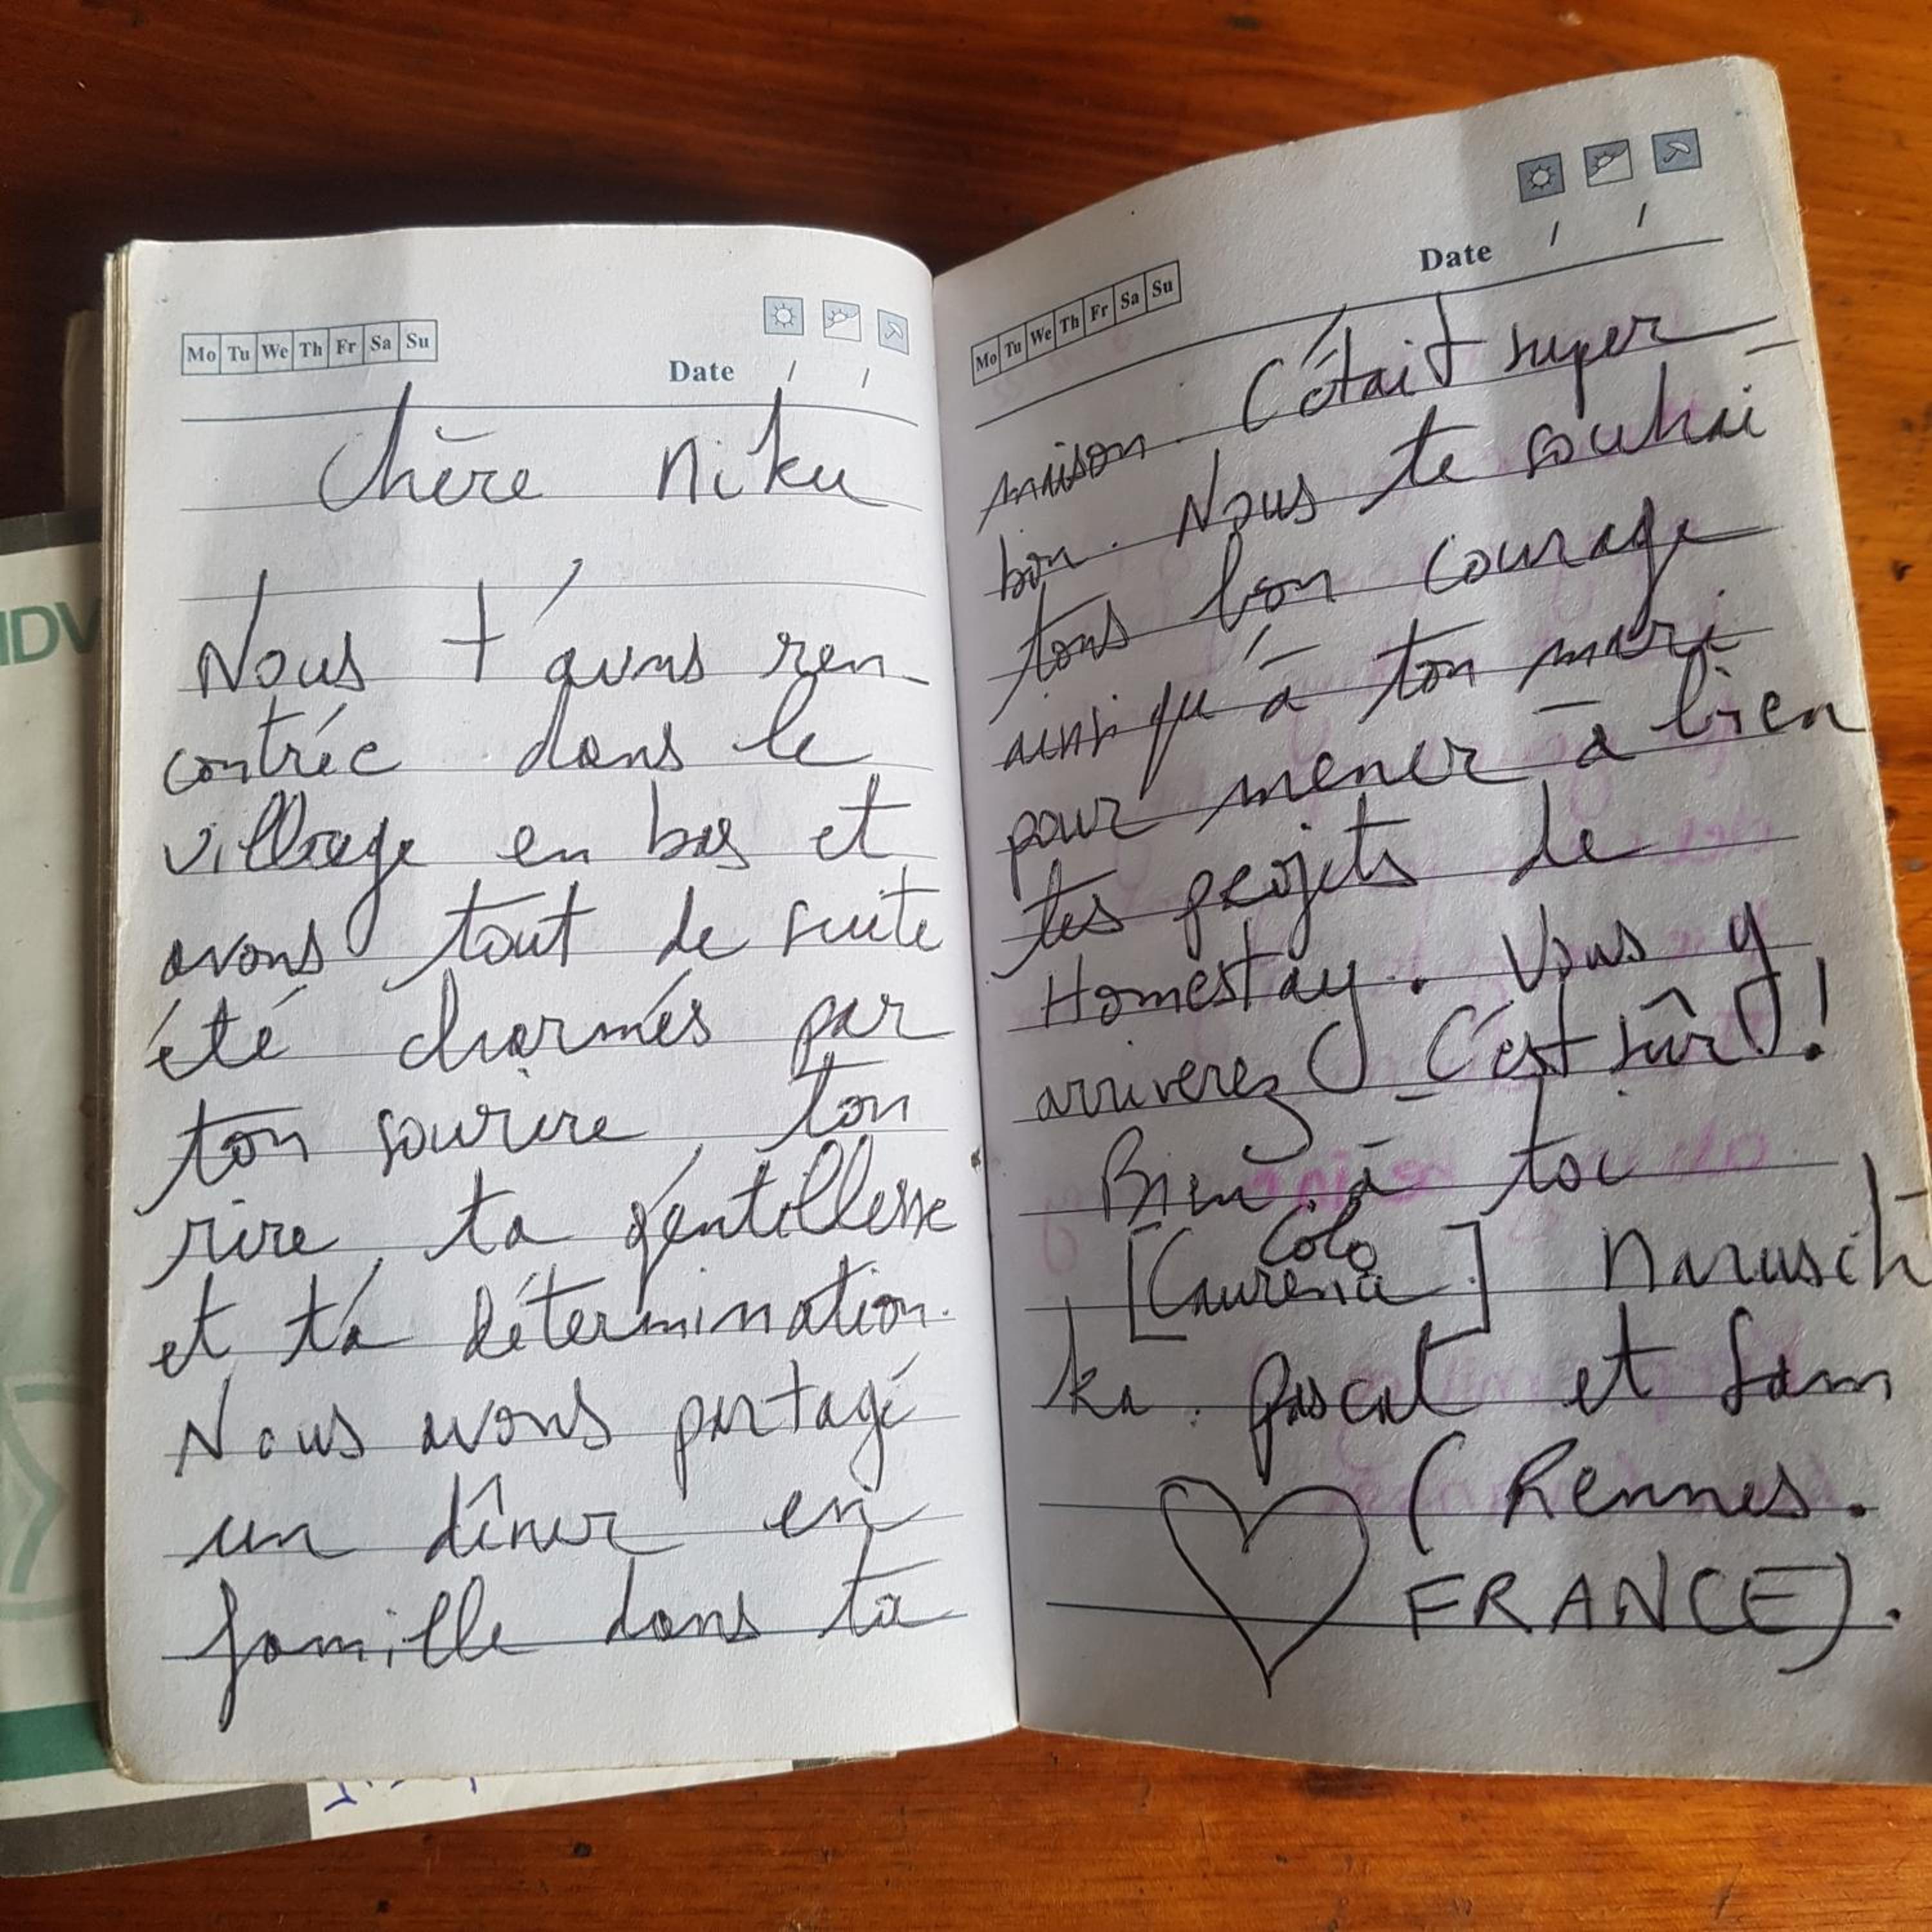 IDV
Mo Tu We Th Fr Sa Su
Date / /
Chère Niku
Nous t'avons ren-
contrée dans le
village en bas et
avons tout de suite
été charmés par
ton sourire, ton
rire, ta gentillesse
et ta détermination.
Nous avons partagé
un dîner en
famille dans ta
Mo Tu We Th Fr Sa Su
Date / /
maison. C'était super
bon. Nous te souhai-
tons bon courage
ainsi qu'à ton mari
pour mener à bien
tes projets de
Homestay. Vous y
arriverez _ C'est sûr !!
Bien à toi
Colo
[Laurence] Narusch
ka. Pascal et Sam
(Rennes.
FRANCE).